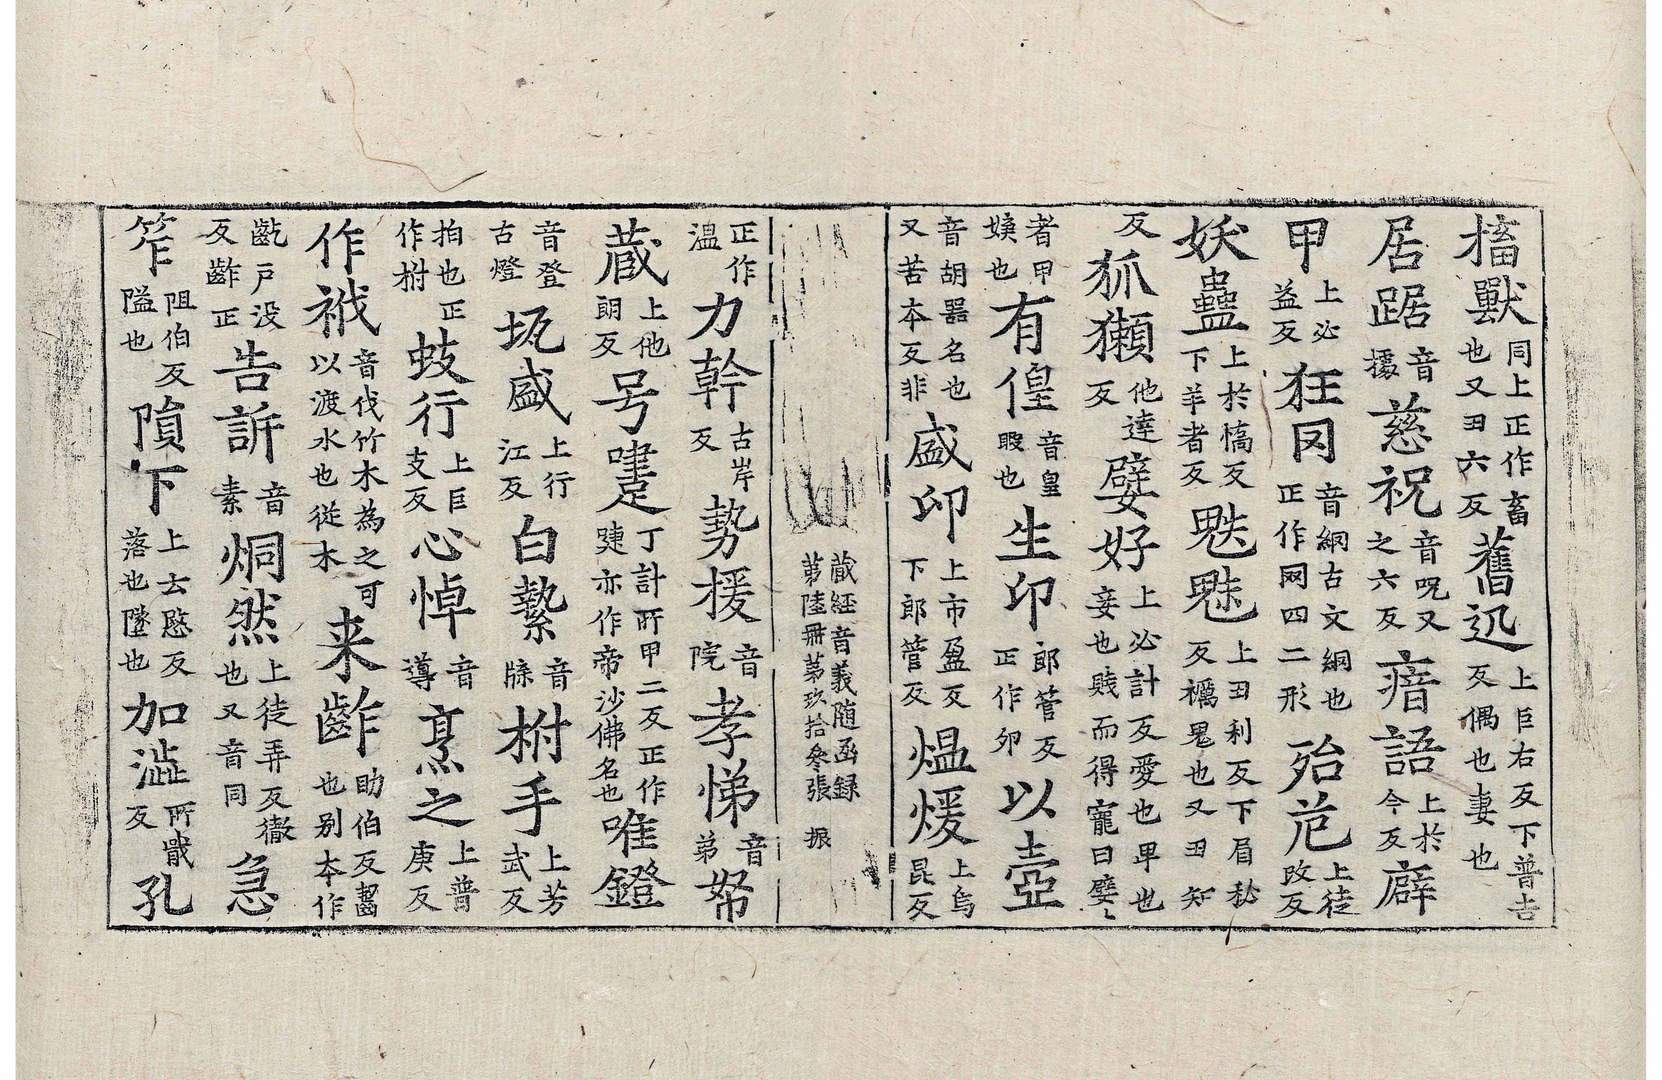 搐獸同上正作畜也又丑六反舊迊上巨右反下普古反偶也妻也
居踞音據慈祝音呪又之六反瘖語上於今反癖
甲上必益反狂罔音網古文網也正作网四二形殆茫上徒改反
妖蠱上於憍反下羊者反魅魅上丑利反下眉秘反禡鬼也又丑知
反狐獺他達反嬖好上必計反愛也卑也妾也賎而得寵曰嬖〻
者甲姨也有偟音皇暇也生卵郎管反正作卵以壺
音胡器名也又苦本反非盛卵上市盈反下郎管反煴煖上烏昆反
藏經音義随函録
第陸冊苐玖拾叅張 振
正作温力幹古岸反勢援音院孝悌音弟帑
蔵上他朗反号疐丁計所甲二反正作疌亦作帝沙佛名也唯鐙
音登古燈坑盛上行江反白氎音牒柎手上芳武反
拍也正作柎蚑行上巨支反心悼音導烹之上普庚反
作栰音伐竹木為之可以渡水也従木来齚助伯反齧也别本作
齕戸没反齚正告訴音素烔然上徒弄反徹也又音同急
笮阻伯反隘也隤下上去愍反落也墜也加澁所戢反孔